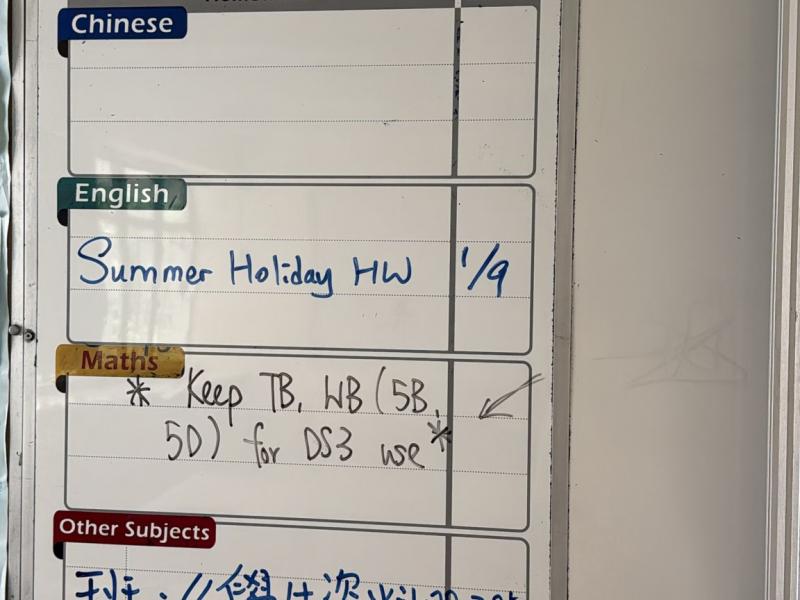 Chinese
English
Summer Holiday HW 1/9
Maths
* Keep TB, WB (5B,
5D) for DS3 use *
Other Subjects